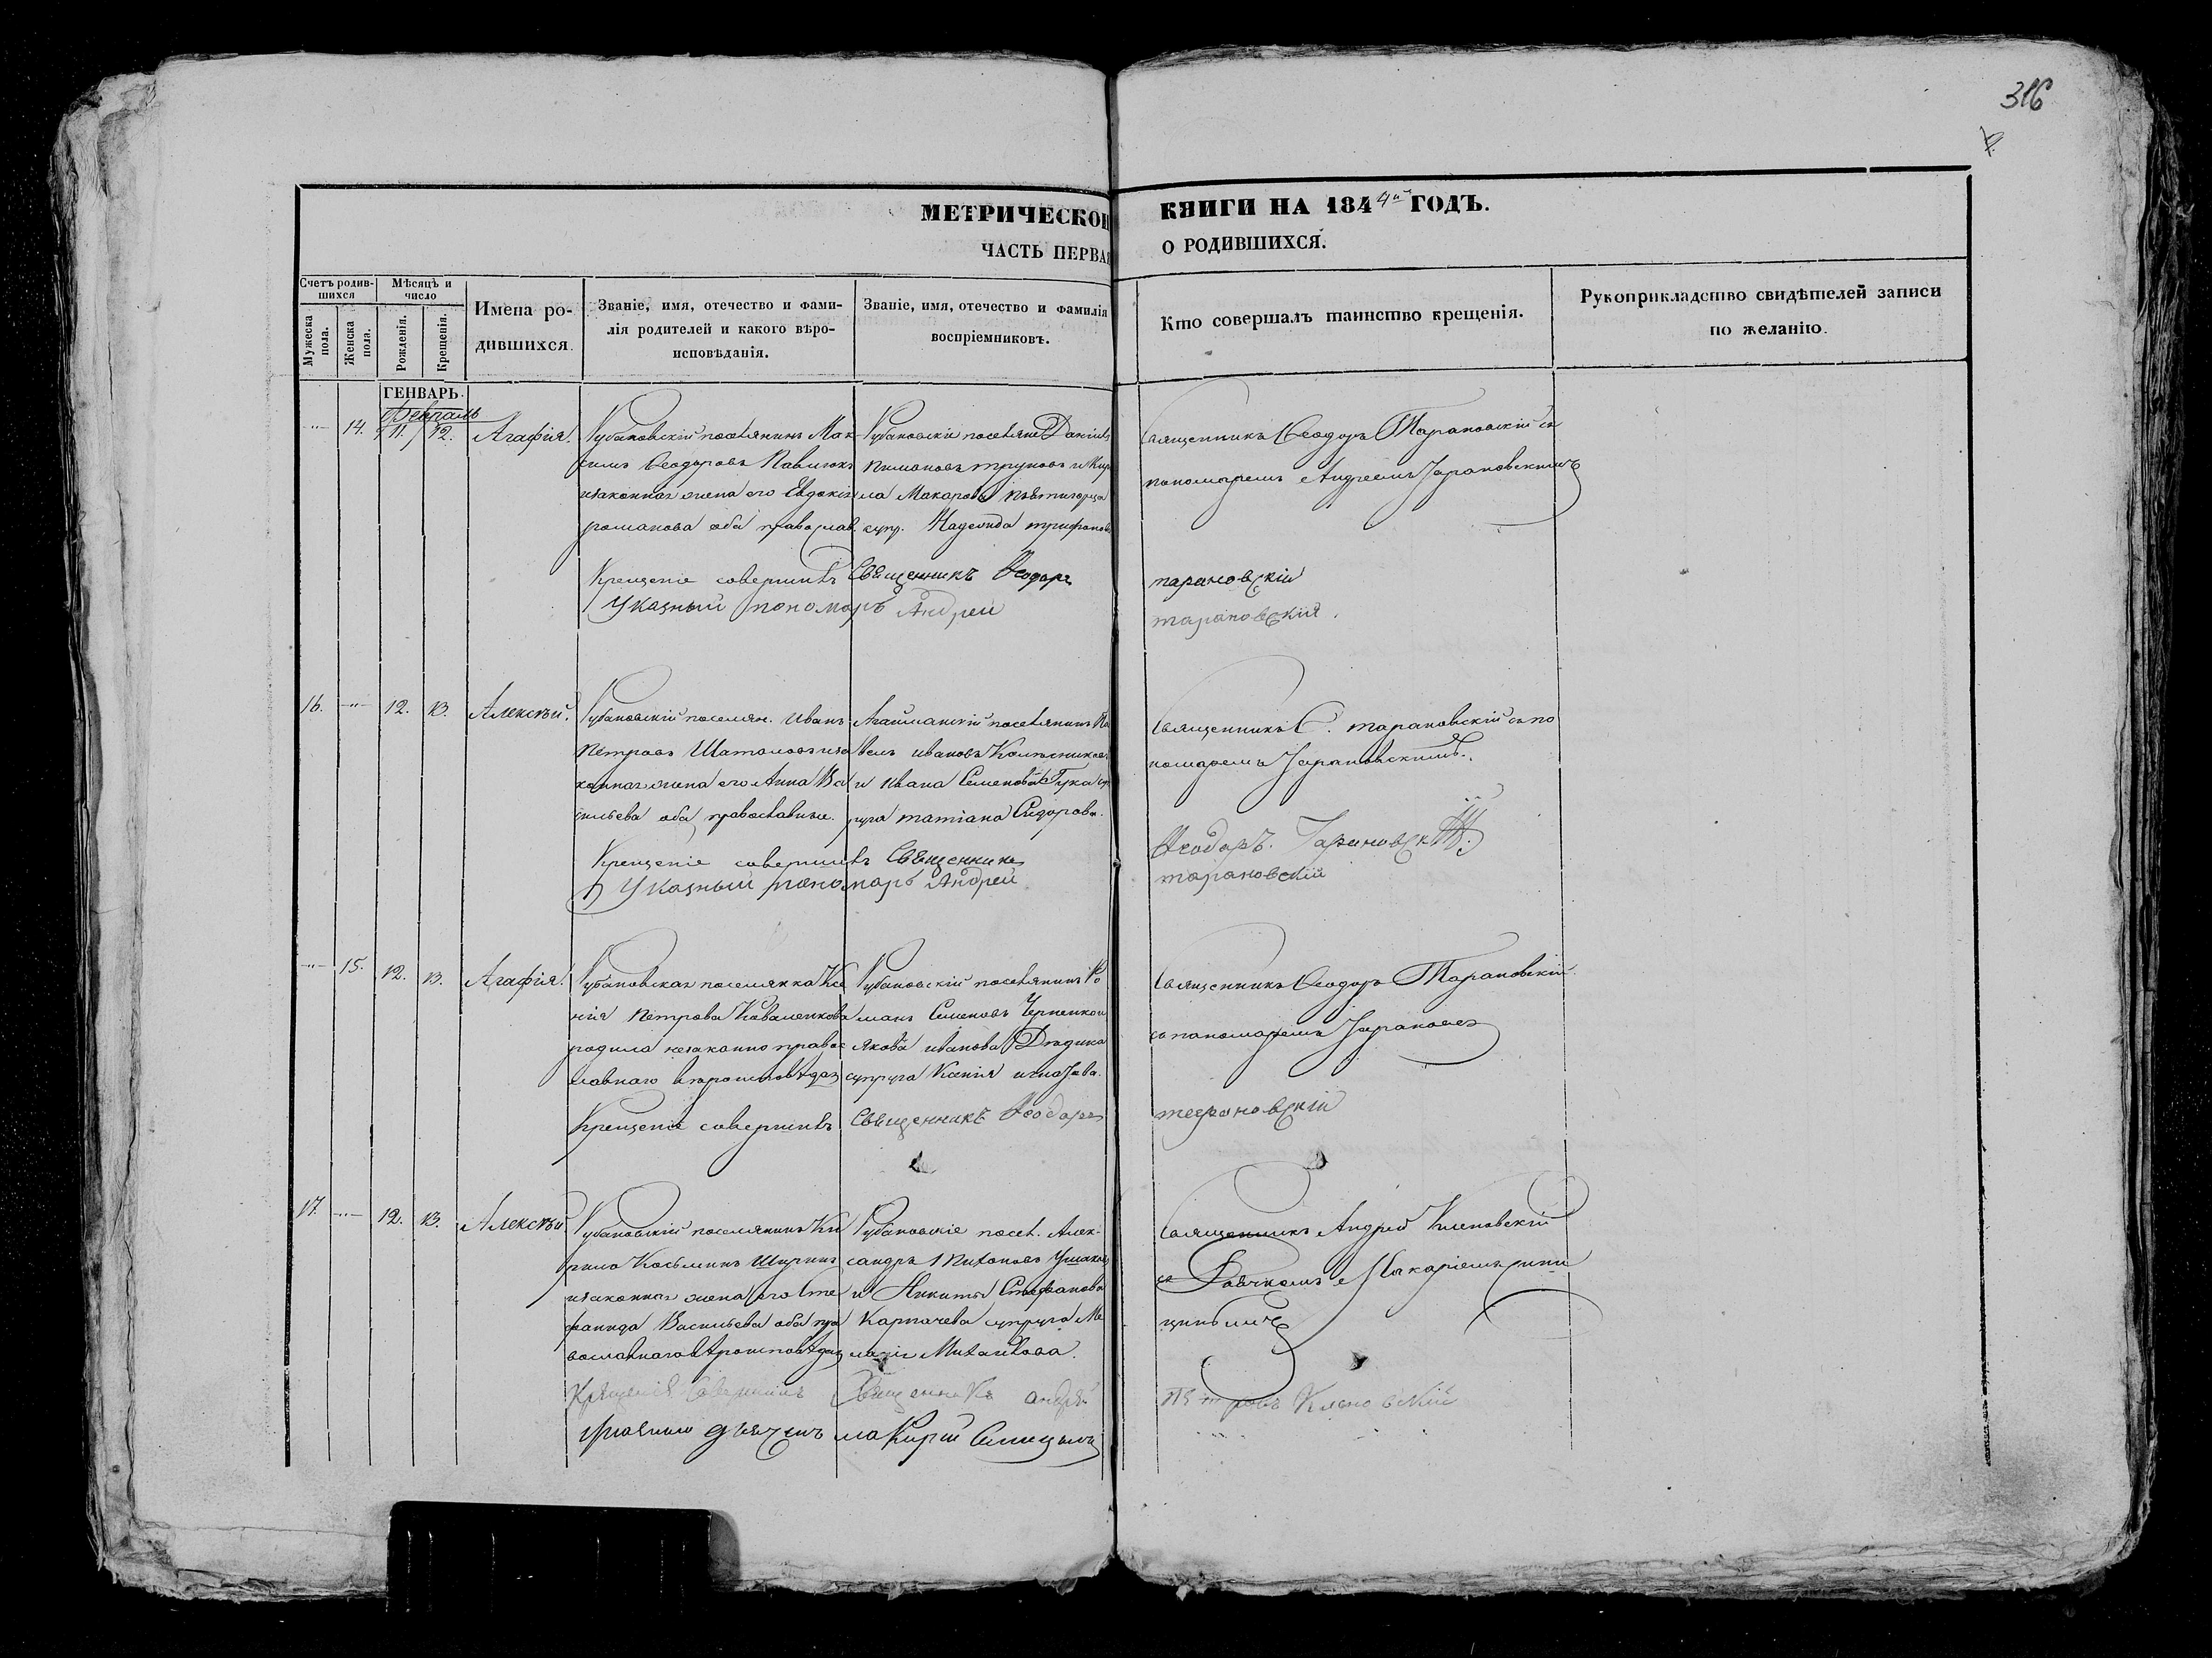 316
МЕТРИЧЕСКОЙ КНИГИ НА 1844й ГОДЪ.
ЧАСТЬ ПЕРВАЯ О РОДИВШИХСЯ.
Счетъ родившихся
Мужеска пола.
Женска пола.
Мѣсяцъ и число
Рожденія.
Крещенія.
Имена родившихся.
Званіе, имя, отечество и фамилія родителей и какого вѣроисповѣданія.
Званіе, имя, отечество и фамилія воспріемниковъ.
Кто совершалъ таинство крещенія.
Рукоприкладство свидѣтелей записи по желанію.
ГЕНВАРЬ.
Февраль
14. 11. 12. Агафія.
Рубановскій поселянинъ Мак-
симъ Феодоровъ Павлюкъ
изаконная жена его Евдокія
романова оба православ.
Рубановскіе поселяне Даніилъ
труновъ и Кир
ла Макарова
супр. Надежда трифонова
Священникъ Феодоръ Тарановскій съ
пономаремъ Андреемъ Тарановскимъ
Крещеніе совершилъ Священникъ Феодоръ тарановскій
Указный пономаръ Андрей тарановскій.
16. 12. 13. Алексѣй.
Рубановскій поселян. Иванъ
Петровъ Шаталовъ иза
конная жена его Анна Ва
сильева оба православные.
Агайманскій поселянинъ Па
велъ ивановъ Колѣсников
и Ивана Семенова Гука суп
руга татіана Сидорова.
Священникъ Ѳ. тарановскій съ по
номаремъ Тарановскимъ.
Крещеніе совершилъ Священникъ Феодоръ. Тарановскій.
Указный пономаръ Андрей тарановскій
15. 12. 13. Агафія.
Рубановская поселянка Ксе
нія Петрова Коваленкова
родила незаконно правос
лавнаго вѣроисповѣдан
Рубановскій поселянинъ Ро
манъ Семеновъ Черненко и
Якова иванова Дѣдика
супруга Ксенія
Священникъ Феодоръ Тарановскій
съ пономаремъ
Крещеніе совершилъ Священникъ Феодоръ тарановскій
17. 12. 13. Алексѣй
Рубановскій поселянинъ Ки
рило Косьминъ Ширинъ
изаконная жена его Сте
фанида Васильева оба пра
вославнаго вѣроисповѣдан
Рубановскіе посел. Алек-
сандръ Ушаковъ
и Никиты Стефанова
Карпачева супруга Ме
ланія Михайлова.
Священникъ Андрей Кленовскій
съ Дьячкомъ Макаріемъ сини
цинымъ
Крещеніе Совершилъ Священникъ андрей Петровъ Кленовскій
дьячекъ макарій Синицынъ